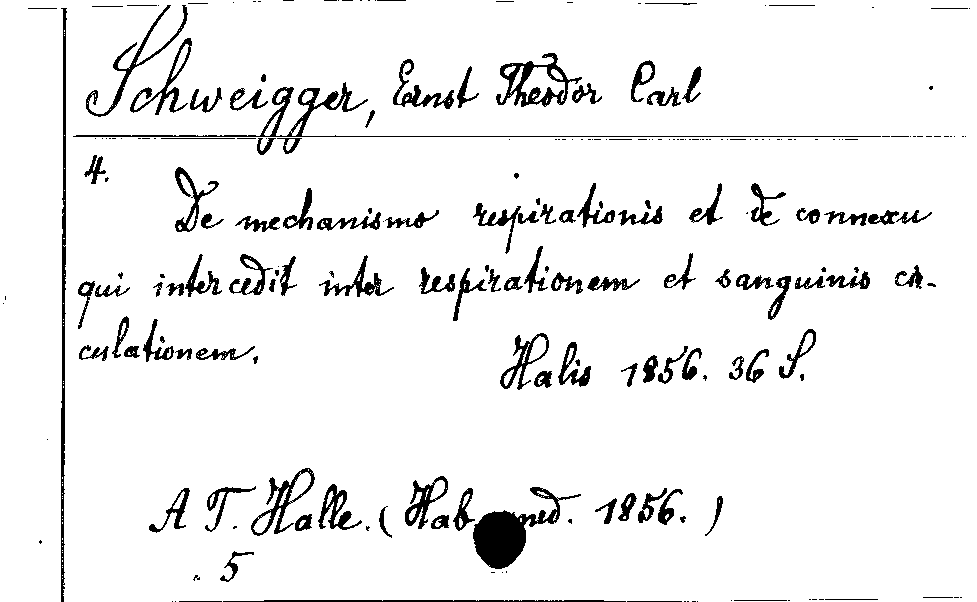 Schweigger, Ernst Theodor Carl
4.
De mechanismo respirationis et de connexu
qui intercedit inter respirationem et sanguinis cir-
culationem.
Halis 1856. 36 S.
A T. Halle. (Hab. med. 1856.)
5